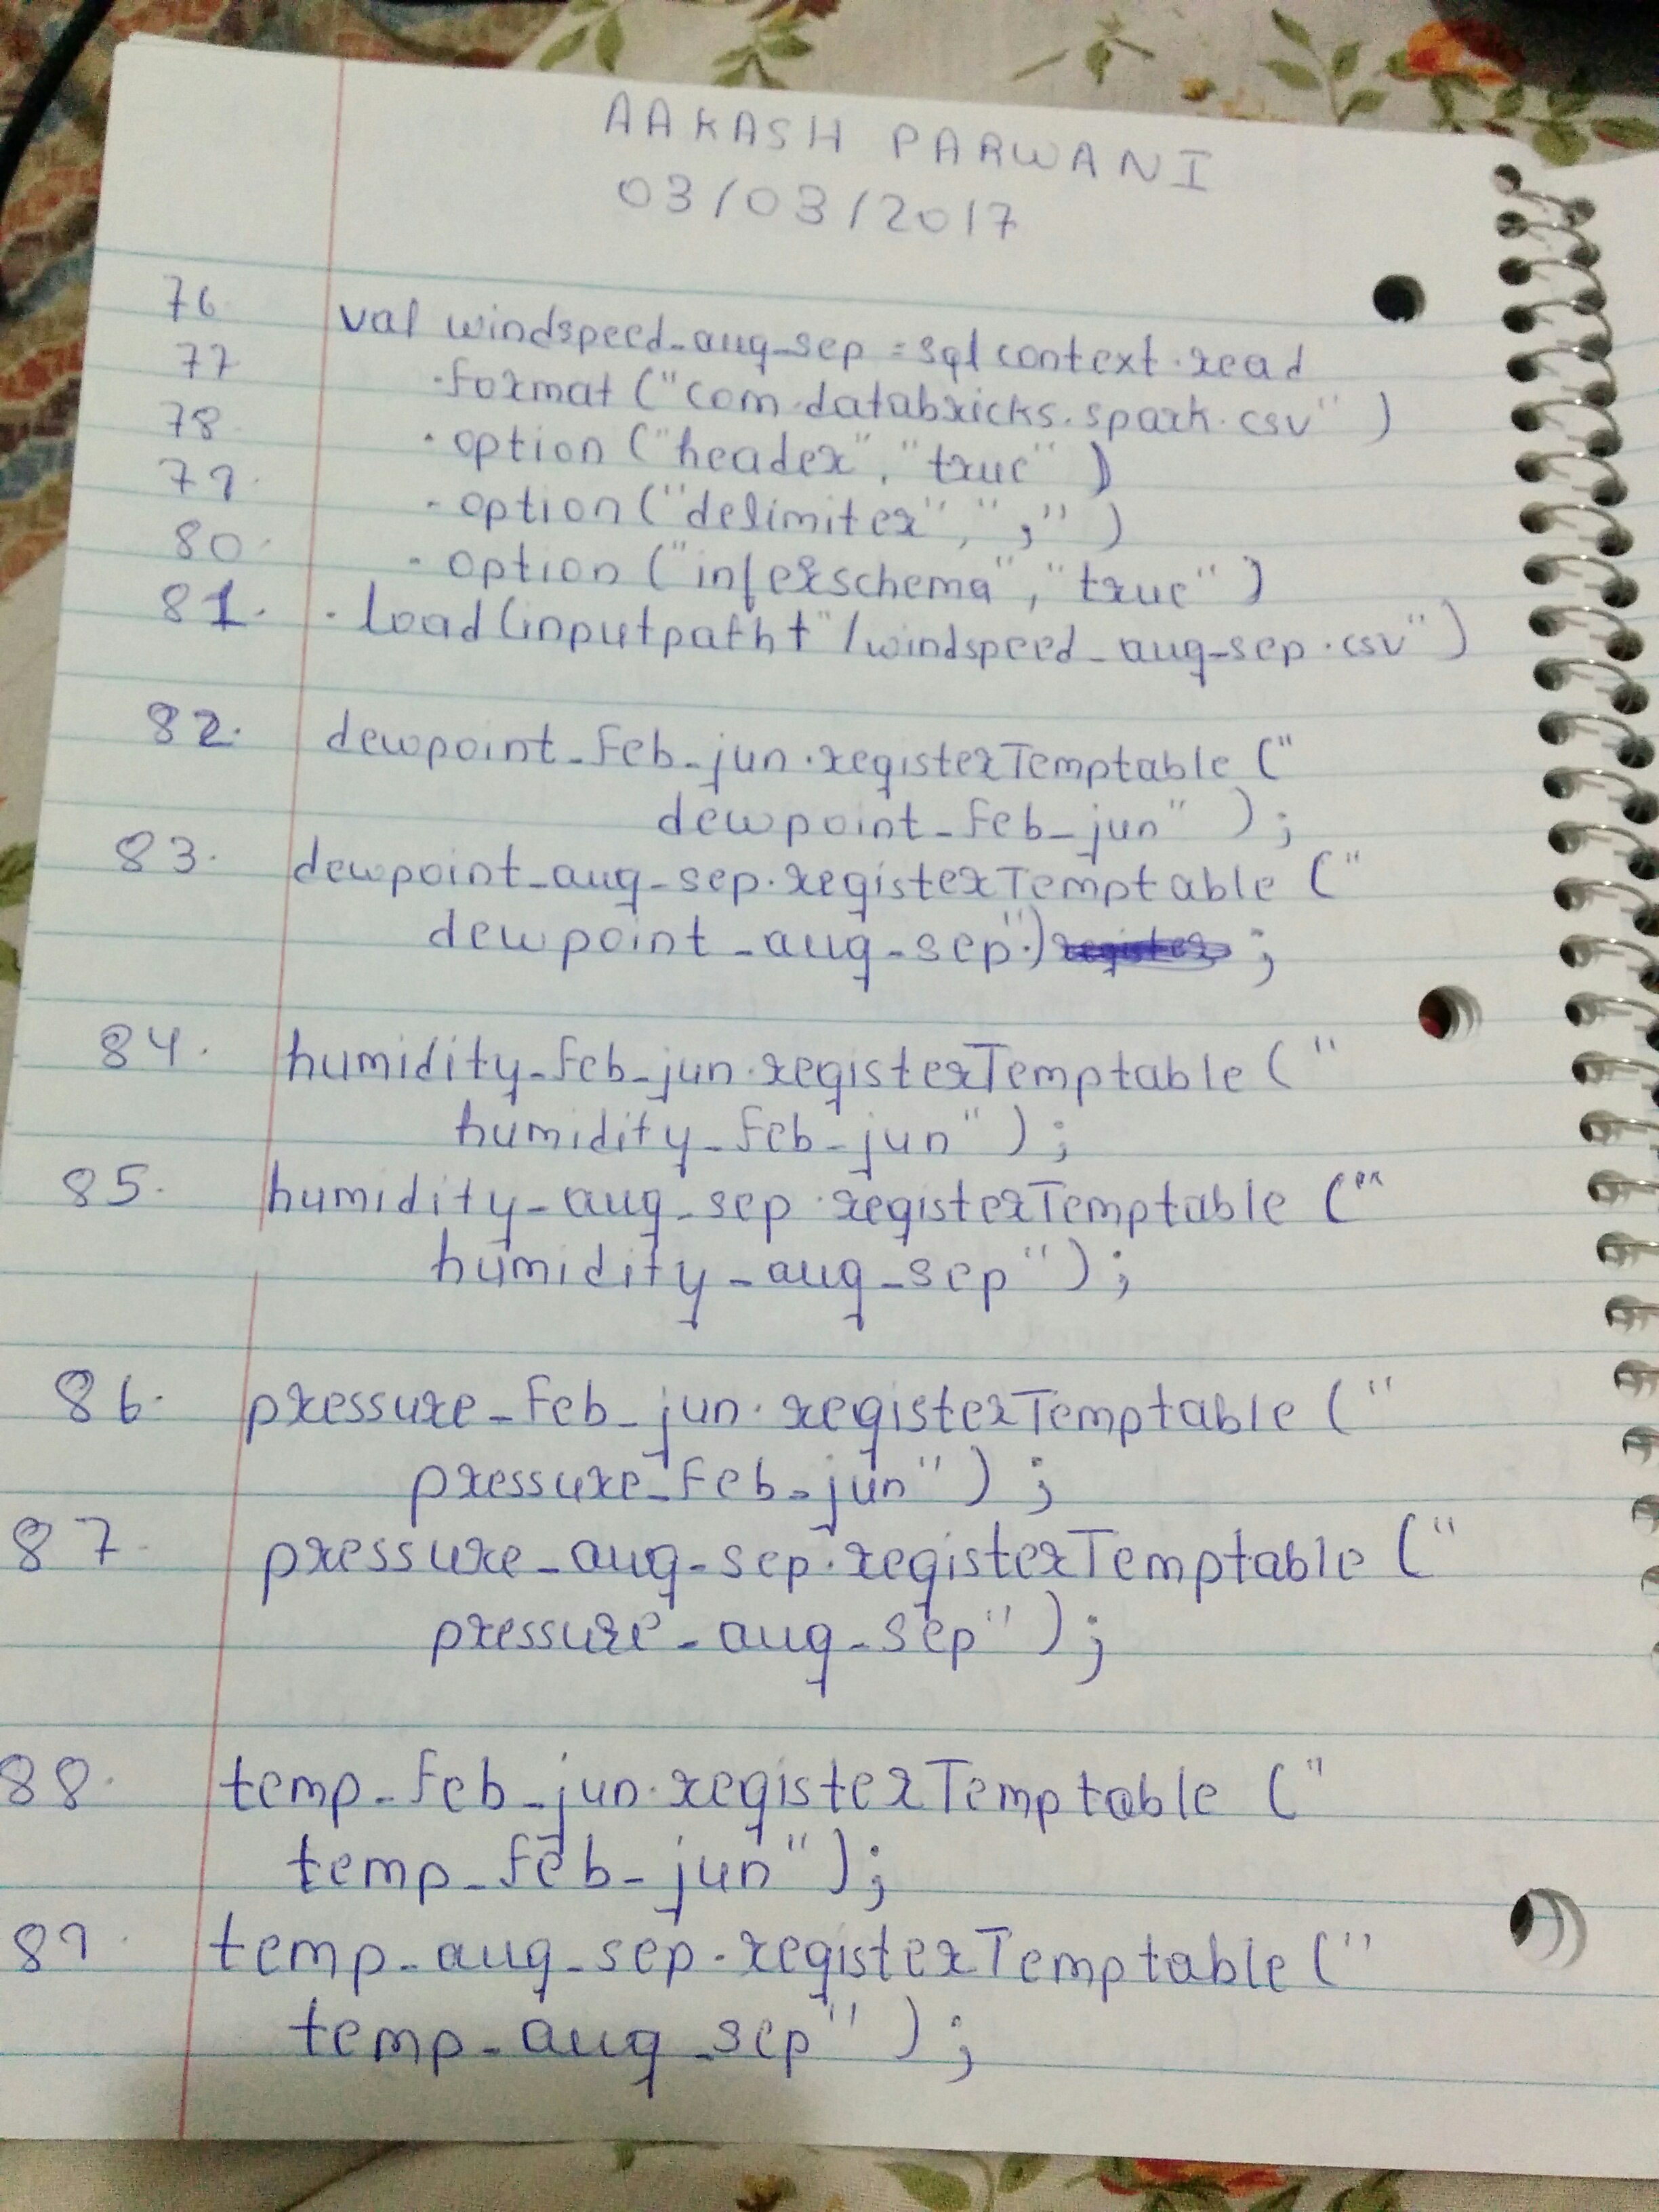 AAKASH PARWANI
03/03/2017
76. val windspeed_aug_sep = sqlcontext.read
77. .format ("com.databricks.spark.csv")
78. .option ("header", "true")
79. .option ("delimiter", ";")
80. .option ("inferschema", "true")
81. .load (inputpath + "/windspeed_aug_sep.csv")
82. dewpoint_feb_jun.registerTemptable ("
dewpoint_feb_jun");
83. dewpoint_aug_sep.registerTemptable ("
dewpoint_aug_sep".) ;
84. humidity_feb_jun.registerTemptable ("
humidity_feb_jun");
85. humidity_aug_sep.registerTemptable ("
humidity_aug_sep");
86. pressure_feb_jun.registerTemptable ("
pressure_feb_jun");
87. pressure_aug_sep.registerTemptable ("
pressure_aug_sep");
88. temp_feb_jun.registerTemptable ("
temp_feb_jun");
89. temp_aug_sep.registerTemptable ("
temp_aug_sep");